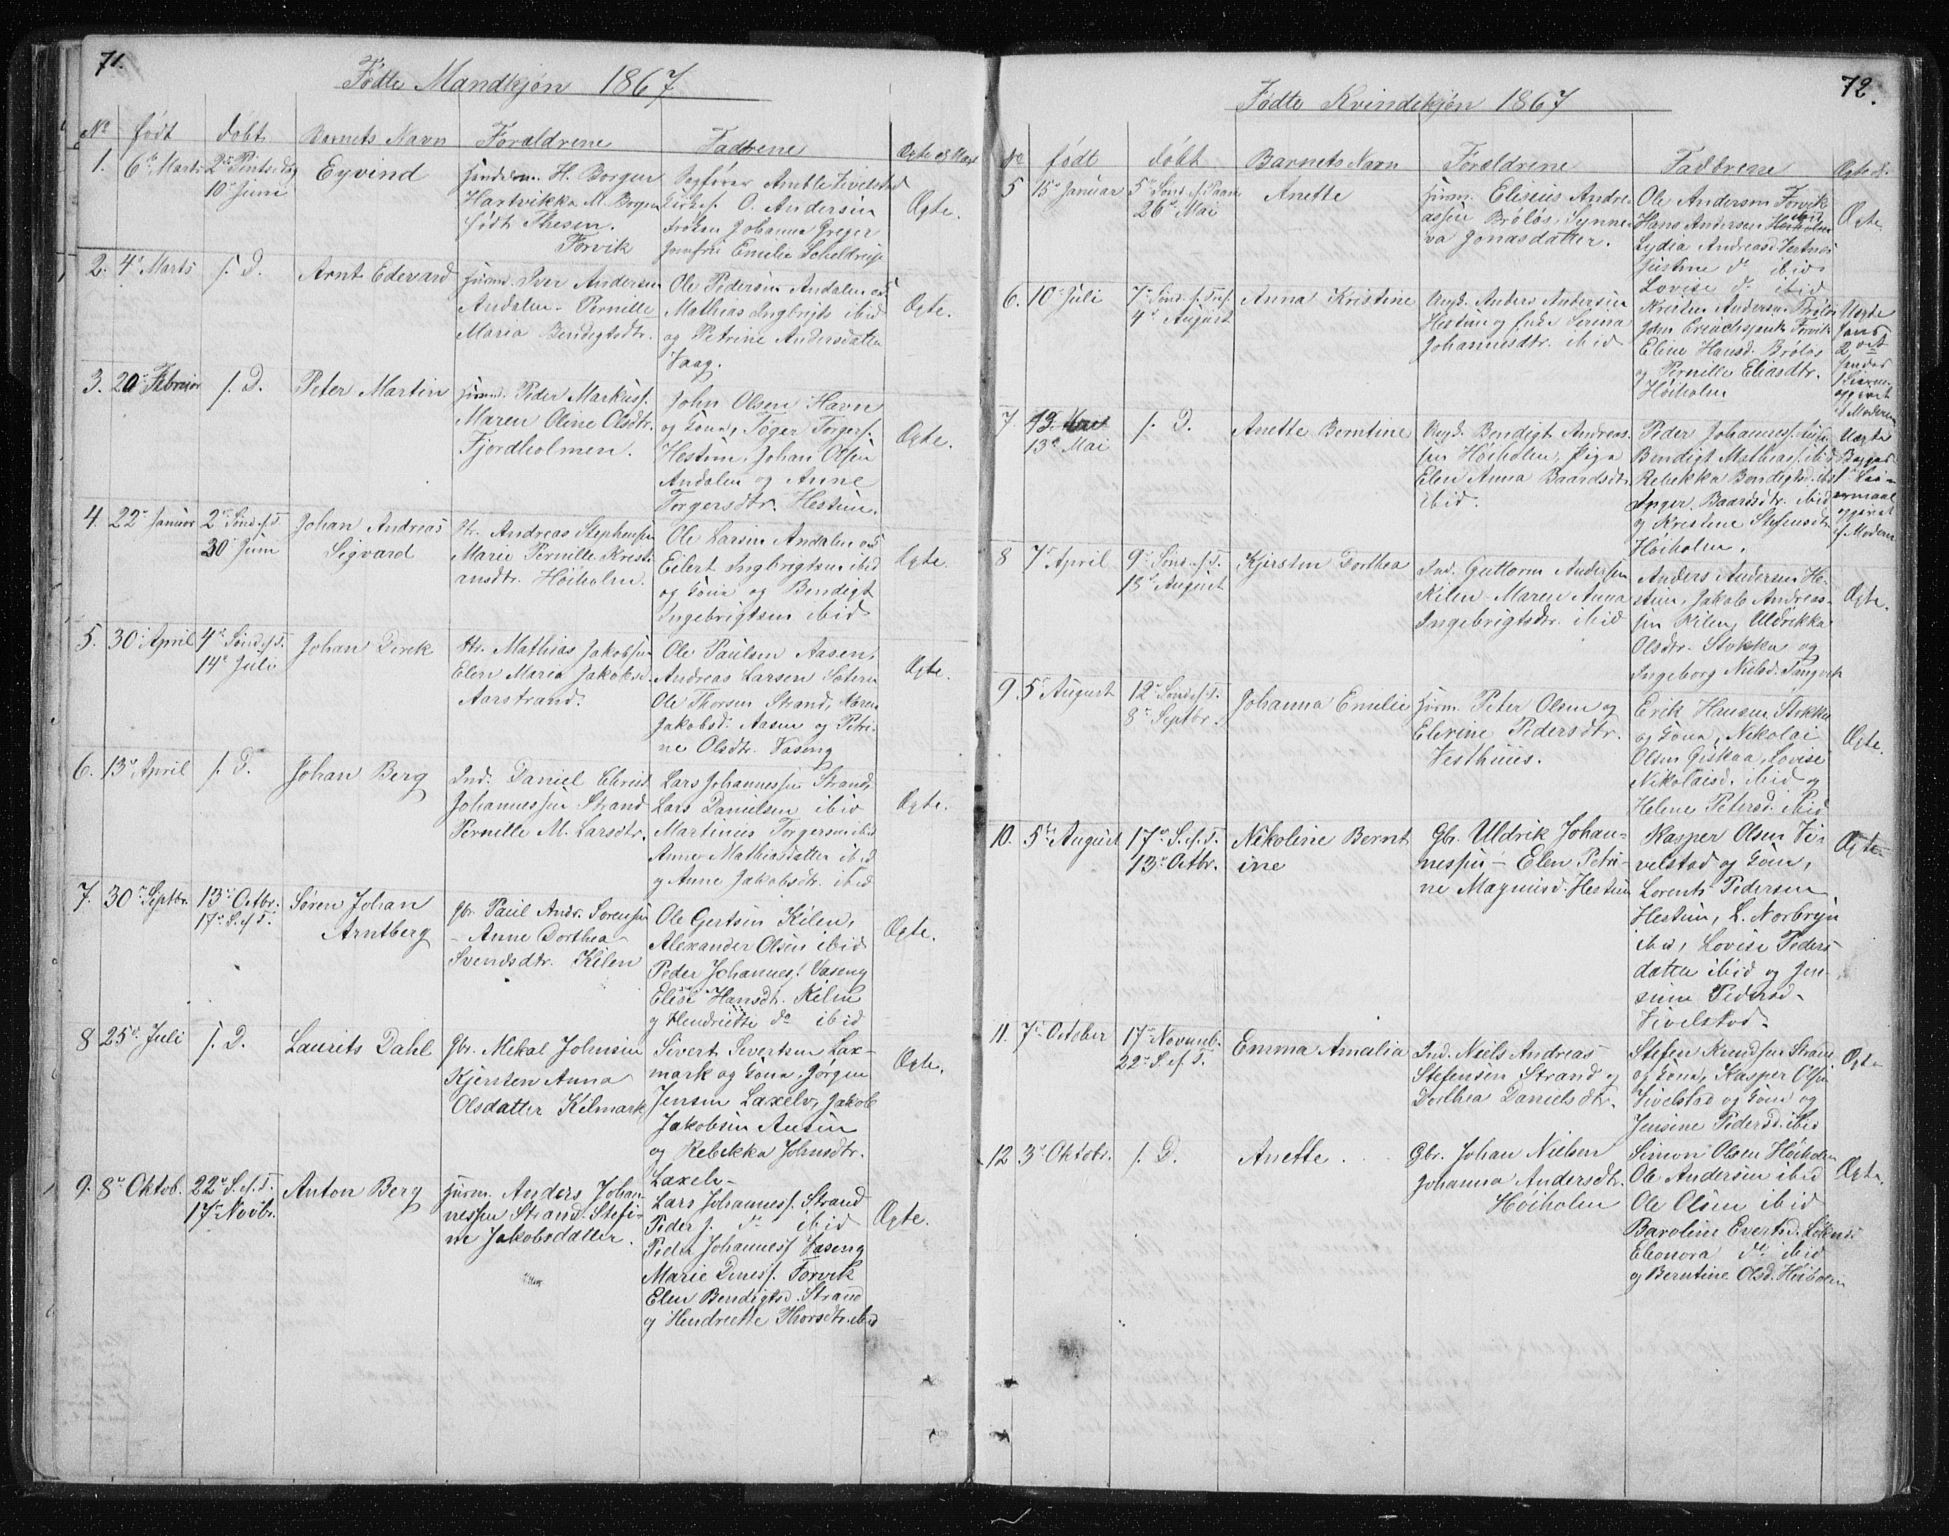 71.
Fødte Mandkjøn 1867
No født døbt Barnets Navn Forældrene Faddrene Ægte el.
1. 6te Marts 2den Pintsedag 10de Juni
Eyvind
H. Borgen
Hartvikka M. Borgen
født Thesen.
Forvik
O. Andersen
Frøken Johanna Greger
Jomfru Emilie Scheldrup
Ægte.
2. 4de Marts s. D.
Arnt Edevard
Iver Andersen
Andalen - Pernille
Maria Bendigtsdtr.
Ole Pedersen Andalen og
Mathias Ingbrigts ibid
og Petrine Andersdatter
Vaag.
Ægte.
3. 20de Februar s. D.
Peter Martin
Peder Markuss.
Maren Oline Olsdtr.
Fjordholmen.
John Olsen Havn
og Kona, Tøger Torgers.
Hestun, Johan Olsen
Andalen og Anne
Torgersdtr. Hestun.
Ægte.
4. 22de Januar 2den Sønd. e. T.
30de Juni
Johan Andreas
Sigvard
Andreas Stephensen
Marie Pernille Kristi-
ansdtr. Høiholm.
Ole Larsen Andalen og
Eilert Ingbrigtsen ibid
og Kona og Bendigt
Ingebrigtsen ibid
Ægte.
5. 30te April 4de Sønd. e. T.
14de Juli
Johan Derek
Mathias Jakobsen
Elen Maria Jakobsd.
Aarstrand.
Ole Paulsen Aasen,
Andreas Larsen Sæteren
Ole Thorsen Strand, Maren
Jakobsd. Aasen og Petri-
ne Olsdtr. Vaseng
Ægte.
6. 13de April s. D.
Johan Berg
Ind. Daniel Christ
Johannessen Strand
Pernille M. Larsdtr.
Lars Johannessen Strand,
Lars Danielsen ibid
Martinus Torgersen ibid
Anne Mathiasdatter ibid
og Anne Jakobsdtr. ibid
Ægte.
7. 30te Septbr. 13de Octbr.
17de S. e. T.
Søren Johan
Arntberg
Gbr. Paul Andr. Sørensen
- Anne Dorthea
Svendsdtr. Kilen
Ole Gertsen Kilen,
Alexander Olsen ibid
Peder Johanness. Vaseng
Elise Hansdtr. Kilen
og Hendriette do ibid
Ægte.
8 25de Juli s. D.
Laurits Dahl
Gbr. Mikal Johnsen
Kjersten Anna
Olsdatter Kilmark
Sivert Severtsen Lax-
mark og Kona, Jørgen
Jensen Laxelv, Jakob
Jakobsen Ausen
og Rebekka Johnsdtr.
Laxelv.
Ægte.
9. 8de Oktob. 22de S. e. T.
17de Novbr.
Anton Berg
Anders Johan-
nessen Strand. Stefi-
ne Jakobsdatter.
Lars Johanness. Strand
Peder J. do ibid
Peder Johanness Vaseng
Marie Dines. Forvik
Elen Bendigtsd. Strand
og Hendriette Thorsdtr. ibid
Ægte.
72.
Fødte Kvindekjøn 1867
No født døbt Barnets Navn Forældrene Faddrene Ægte el.
5 15de Januar 5te Sønd. e. Paaske
26de Mai
Anette
Eliseus Andre-
assen Brøløs, Synne-
va Jonasdatter.
Ole Andersen Forvik
Hans Andersen Høiholm
Lydia Andreasd.
Justine do ibid
Lovise do ibid
Ægte
6. 10de Juli 7de Sønd. e. Tref.
4de August
Anna Kristine
Ungk. Anders Andersen
Hestun og Serina
Johannesdtr. ibid
Kristen Andersen Brøløs
Forvik
Eline Hansd. Brøløs
og Pernille Eliasdtr.
Høiholm
Uægte
7 13. Mai
13de Mai s. D.
Anette Berntine
Ungk. Bendigt Andreas-
sen Høiholm, Pige
Elen Anna Baardsdtr.
ibid.
Peder Johanness.
Bendigt Mathiass. ibid
Rebekka Bendigtsd. ibid
Baardsdtr. ibid
og Kristine Stefensdtr.
Høiholm.
Uægte
8 7de April 9de Sønd. e. T.
18de August
Kjersten Dorthea
Ind. Guttorm Andersen
Kilen - Maren Anna
Ingebrigtsdtr. ibid
Anders Andersen He-
stun, Jakob Andreas-
sen Kilen, Uldrikka
Olsdtr. Stokka og
Ingeborg Nielsd.
Ægte.
9 5te August 12te Sønd. e. T.
8de Septbr.
Johanna Emilie
Peter Olsen og
Elevine Pedersdtr.
Vesthuus.
Erik Hansen Stokka
og Kona, Nikolai
Olsen Giskaa, Lovise
Nikolaisd. ibid og
Helene Petersd. ibid
Ægte.
10. 5te August 17de S. e. T.
13de Octbr.
Nikoline Bernt
ine
Gbr. Uldrik Johan-
nessen - Elen Petri-
ne Magnusd. Hestun
Kasper Olsen Vi-
velstad og Kona,
Lorents Pedersen
Hestun, L. Norbryn
ibid, Lovise Peders-
datter ibid og Jen-
sine Pedersd.
Vivelstad.
Ægte
11. 7de October 17de Novemb.
22de S. e. T.
Emma Amalia
Ind. Niels Andreas
Stefensen Strand og
Dorthea Danielsdtr.
Stefen Knudsen Strand
og Kona, Kasper Olsen
Vivelstad og Kona og
Jensine Pedersd. ibid
Ægte
12 3de Oktobr. s. D.
Anette.
Gbr. Johan Nielsen
Johanna Andersdtr.
Høiholm
Simon Olsen Høiholm
Ole Andersen ibid
Ole Olsen ibid
Baroline Evertsd.
Eleonora do ibid
og Berntine Olsd. Høiholm
Ægte.